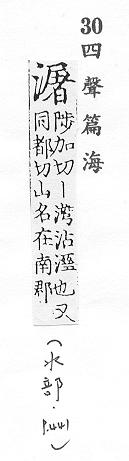 30四聲篇海
濖
陟加切丨濖沾濕也又
同都切山名在南郡
(水部·p.441)